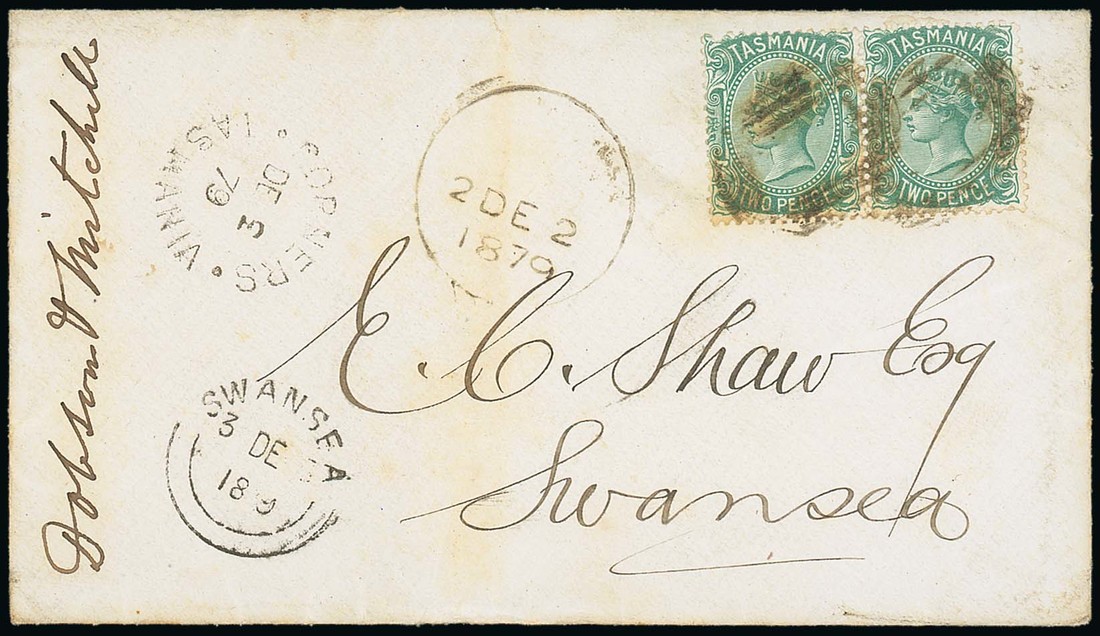 Dobson & Mitchell
TASMANIA
TWO PENCE
TASMANIA
TWO PENCE
CORNERS
TASMANIA
3
DE
79
2 DE 2
1879
E. C. Shaw Esq
Swansea
SWANSEA
3 DE
18 9